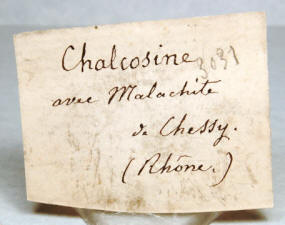 Chalcosine
3031
avec Malachite
de Chessy.
(Rhône.)